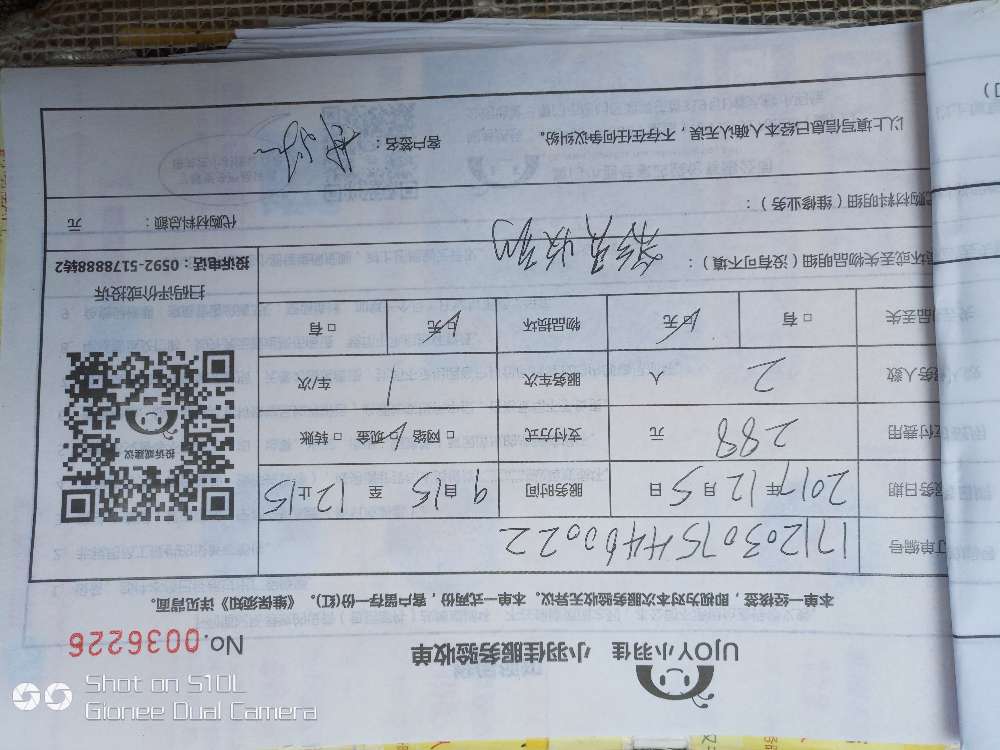 UJOY小羽佳 小羽佳服务验收单
No.0036226
本单一经签字,即视为对本次服务验收无异议。本单一式两份,客户留存一份(红)。《维保须知》详见背面。
订单编号 171203075H400022
服务日期 2017年12月5日 服务时间 9自15至12止15
应付费用 288 元 支付方式 □网络 □现金 □转账
服务人数 2 人 服务车次 1 车/次
物品丢失 □有 □无 物品损坏 □无 □有
投诉或建议
扫码评价或投诉
投诉电话:0592-5178888转2
损坏或丢失物品明细(没有可不填):
代购材料明细(维修业务):
代购材料总额: 元
以上填写信息已经本人确认无误,不存在任何争议纠纷。 客户签名:
Shot on S10L
Gionee Dual Camera